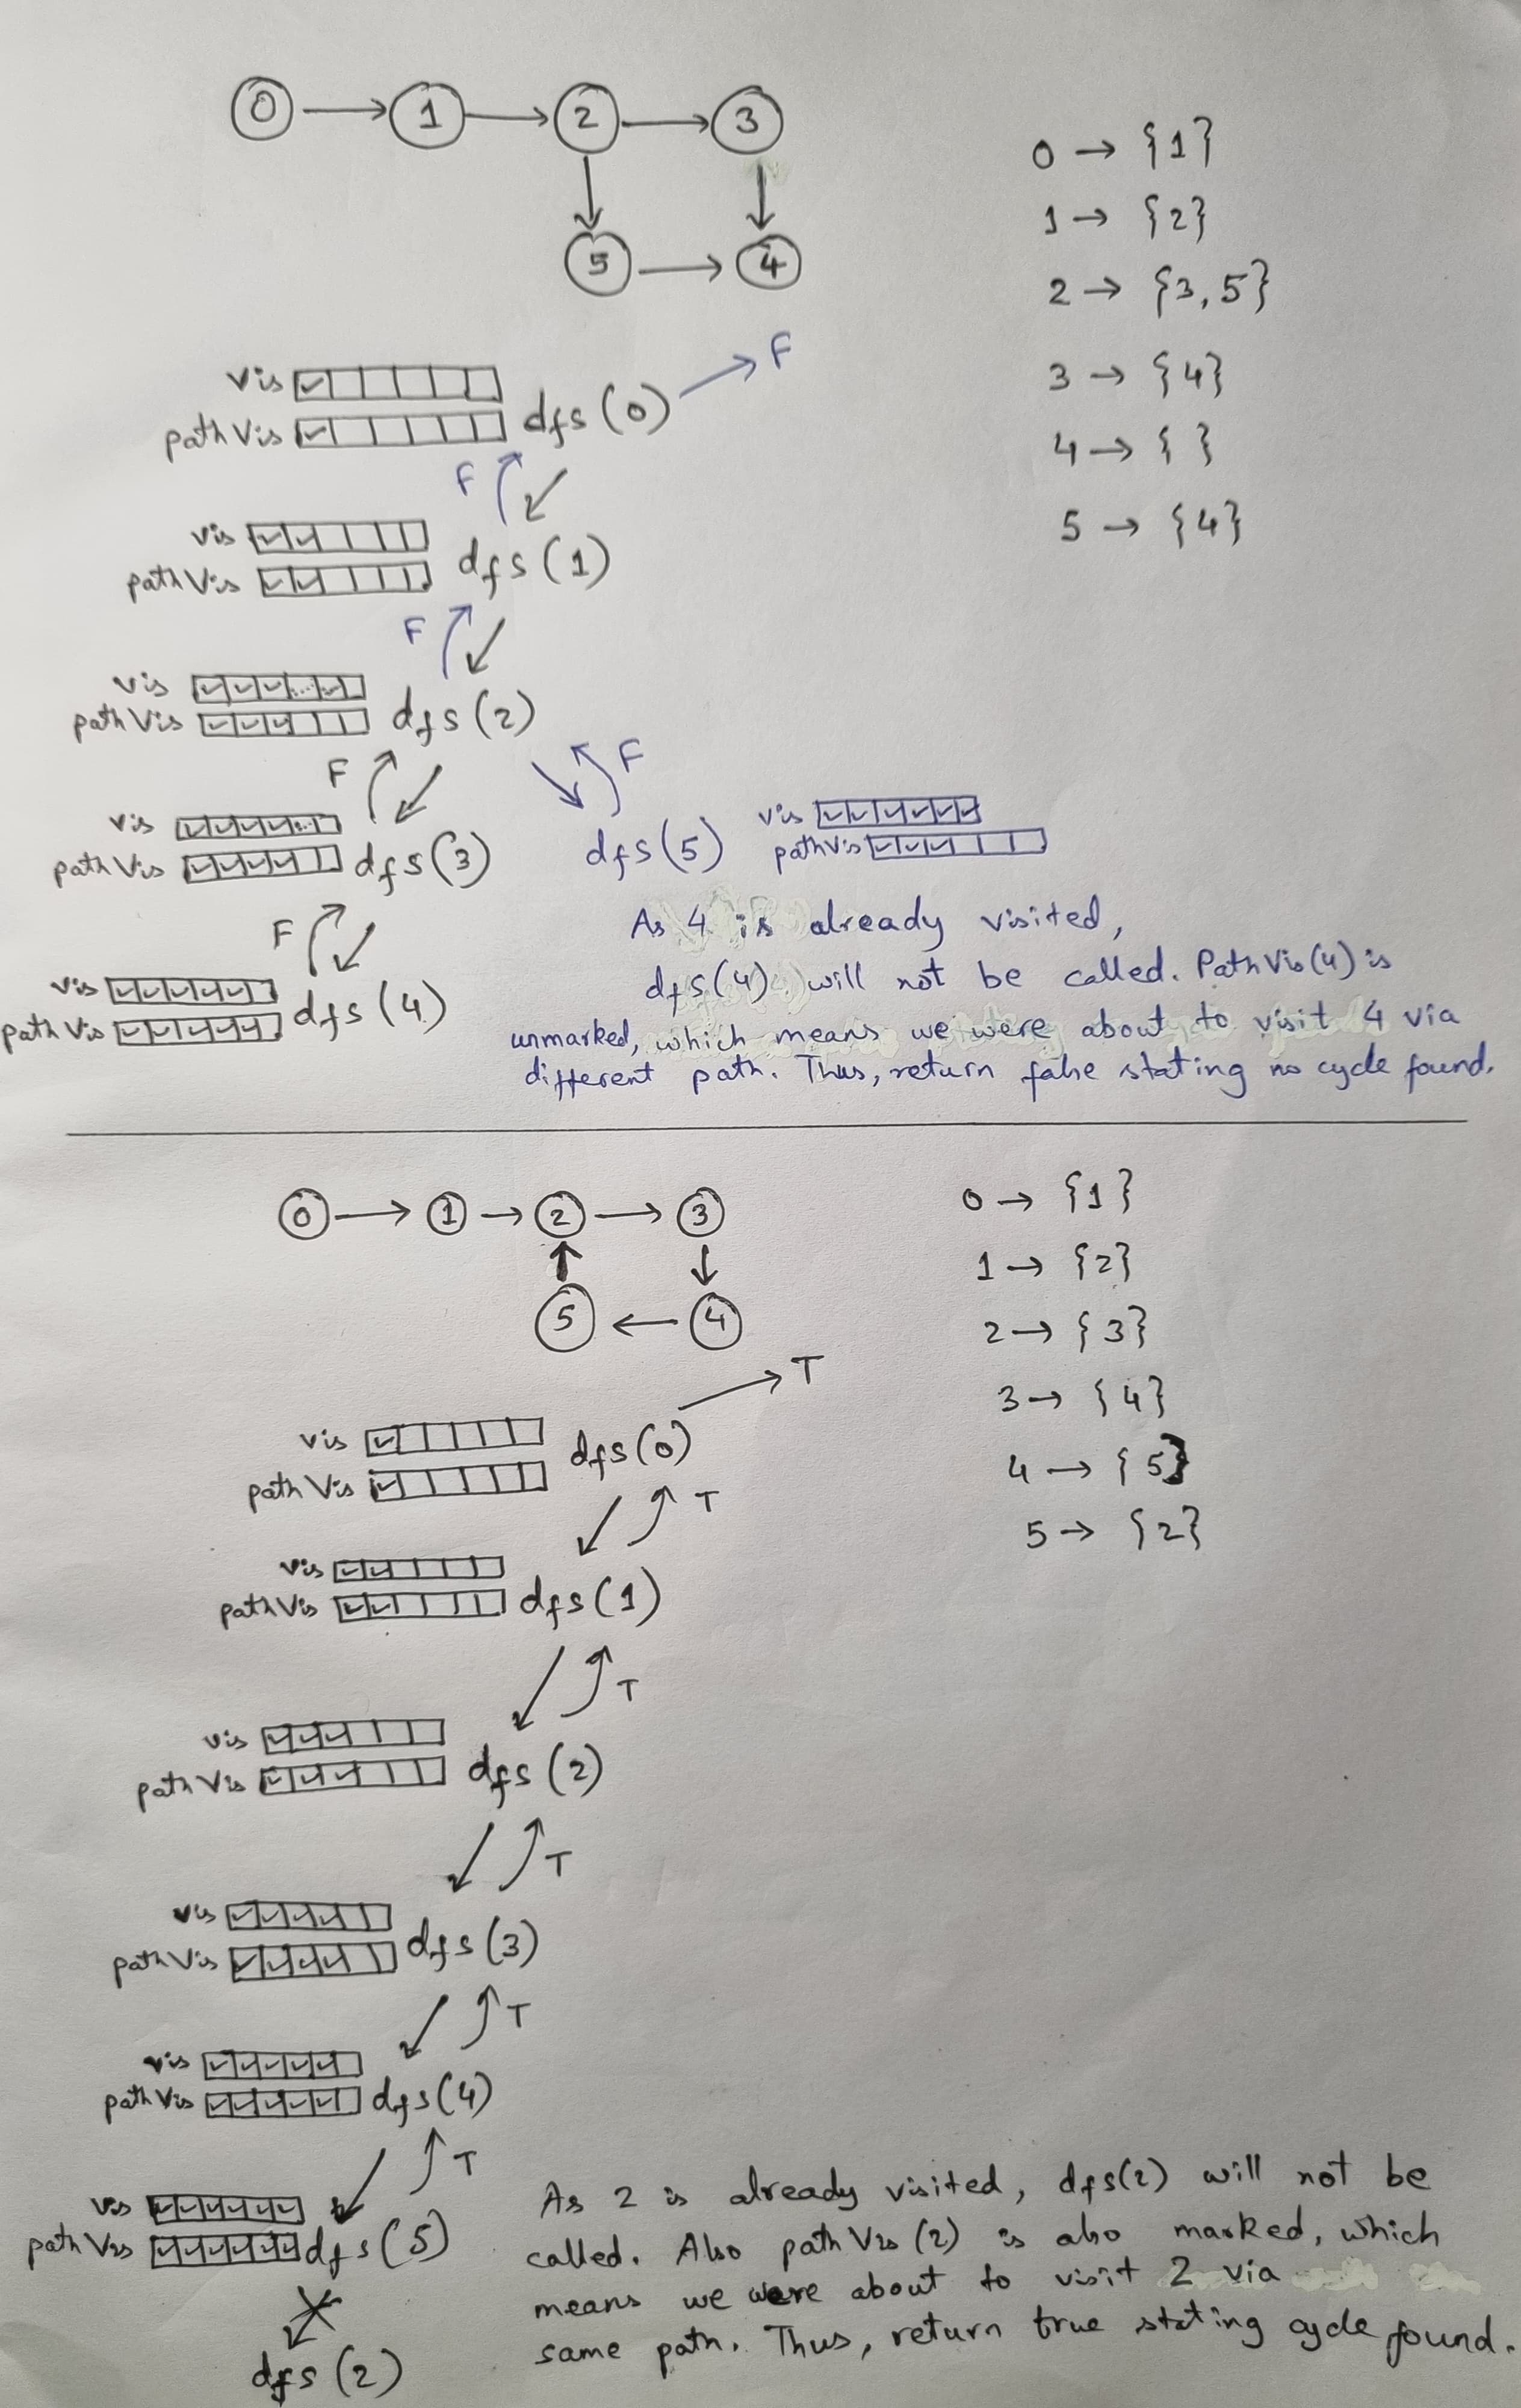 0 1 2 3
5 4
0 → {1}
1 → {2}
2 → {3,5}
3 → {4}
4 → { }
5 → {4}
vis
path Vis dfs (0) F
F
vis
path Vis dfs (1)
F
vis
path Vis dfs (2)
F F
vis
path Vis dfs (3)
dfs (5) vis
pathvis
F
vis
path Vis dfs (4)
As 4 is already visited,
dfs(4) will not be called. PathVis(4) is
unmarked, which means we were about to visit 4 via
different path. Thus, return false stating no cycle found.
0 1 2 3
5 4
0 → {1}
1 → {2}
2 → {3}
3 → {4}
4 → {5}
5 → {2}
T
vis
path Vis dfs (0)
T
vis
path Vis dfs (1)
T
vis
path Vis dfs (2)
T
vis
path Vis dfs (3)
T
vis
path Vis dfs (4)
T
vis
path Vis dfs (5)
dfs (2)
As 2 is already visited, dfs(2) will not be
called. Also path Vis (2) is also marked, which
means we were about to visit 2 via
same path. Thus, return true stating cycle found.